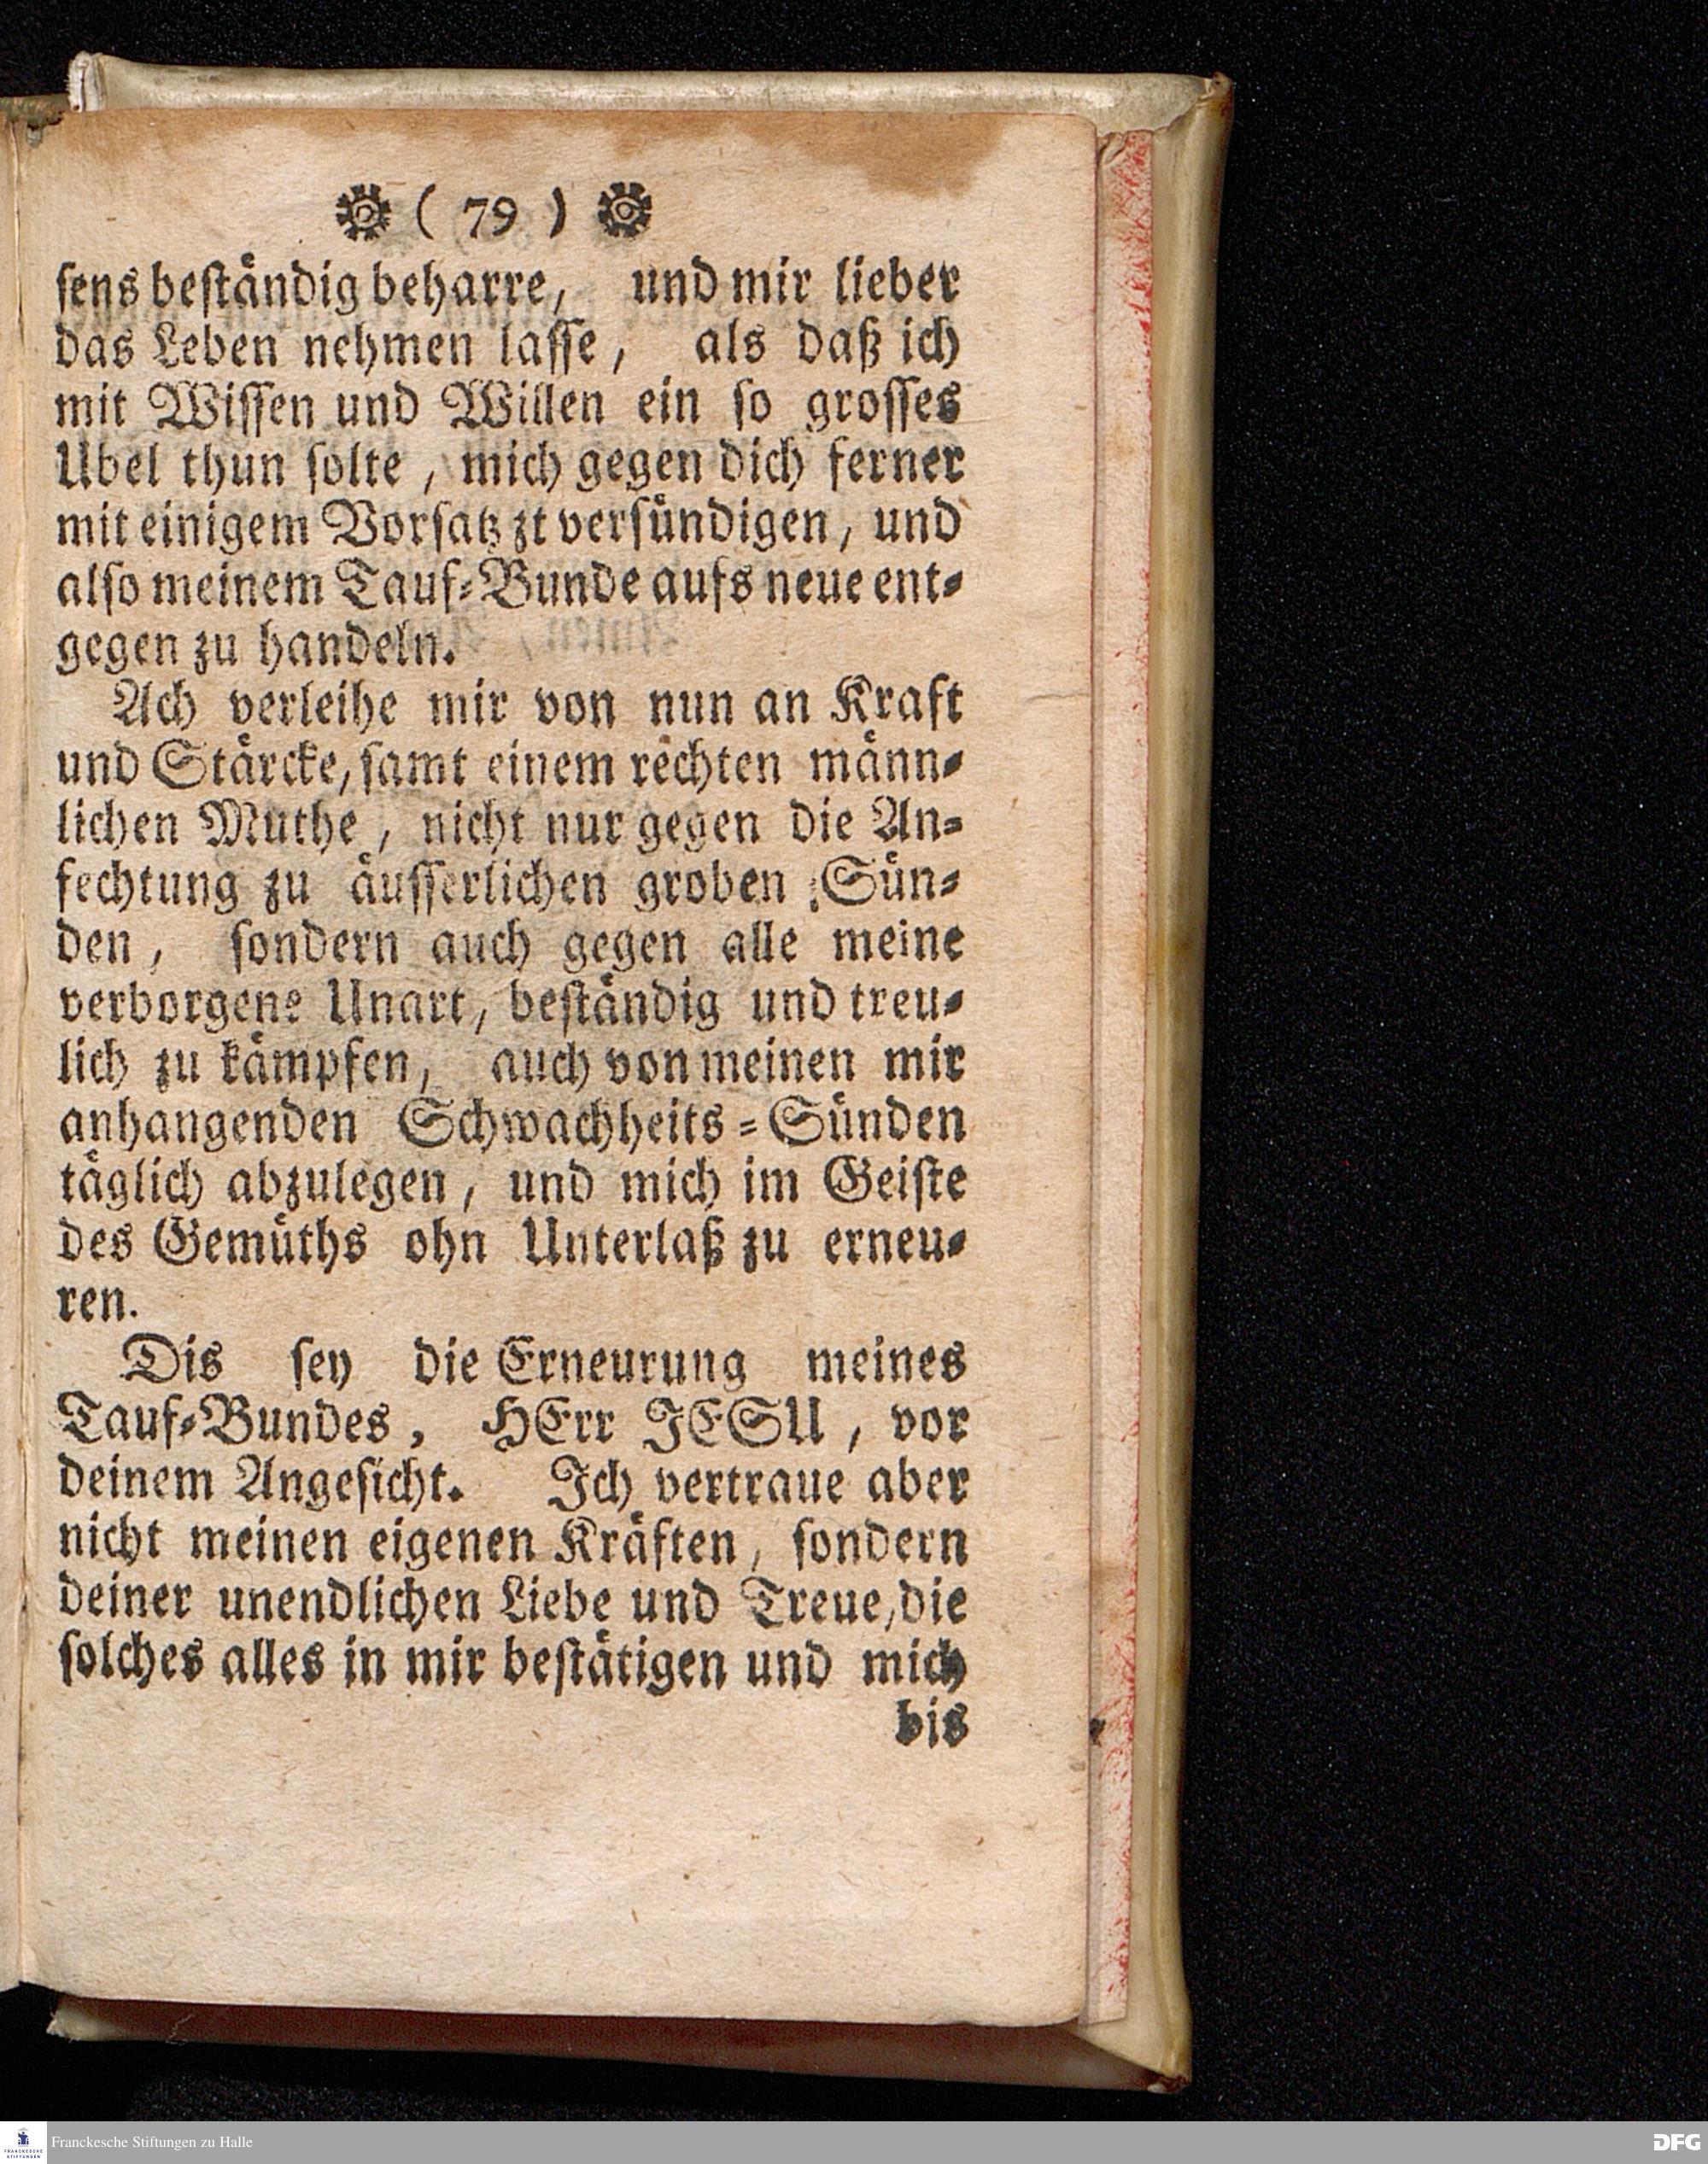 ( 79 )
ſens beſtändig beharre, und mir lieber
das Leben nehmen laſſe, als daß ich
mit Wiſſen und Willen ein ſo groſſes
Ubel thun ſolte, mich gegen dich ferner
mit einigem Vorſatz zt verſündigen, und
alſo meinem Tauf⸗Bunde aufs neue ent⸗
gegen zu handeln.
Ach verleihe mir von nun an Kraft
und Stärcke, ſamt einem rechten männ⸗
lichen Muthe, nicht nur gegen die An⸗
fechtung zu äuſſerlichen groben Sün⸗
den, ſondern auch gegen alle meine
verborgene Unart, beſtändig und treu⸗
lich zu kämpfen, auch von meinen mir
anhangenden Schwachheits⸗Sünden
täglich abzulegen, und mich im Geiſte
des Gemüths ohn Unterlaß zu erneu⸗
ren.
Dis ſey die Erneurung meines
Tauf⸗Bundes, HErr JESU, vor
deinem Angeſicht. Ich vertraue aber
nicht meinen eigenen Kräften, ſondern
deiner unendlichen Liebe und Treue, die
ſolches alles in mir beſtätigen und mich
bis
FRANCKESCHE
STIFTUNGEN
Franckesche Stiftungen zu Halle
DFG